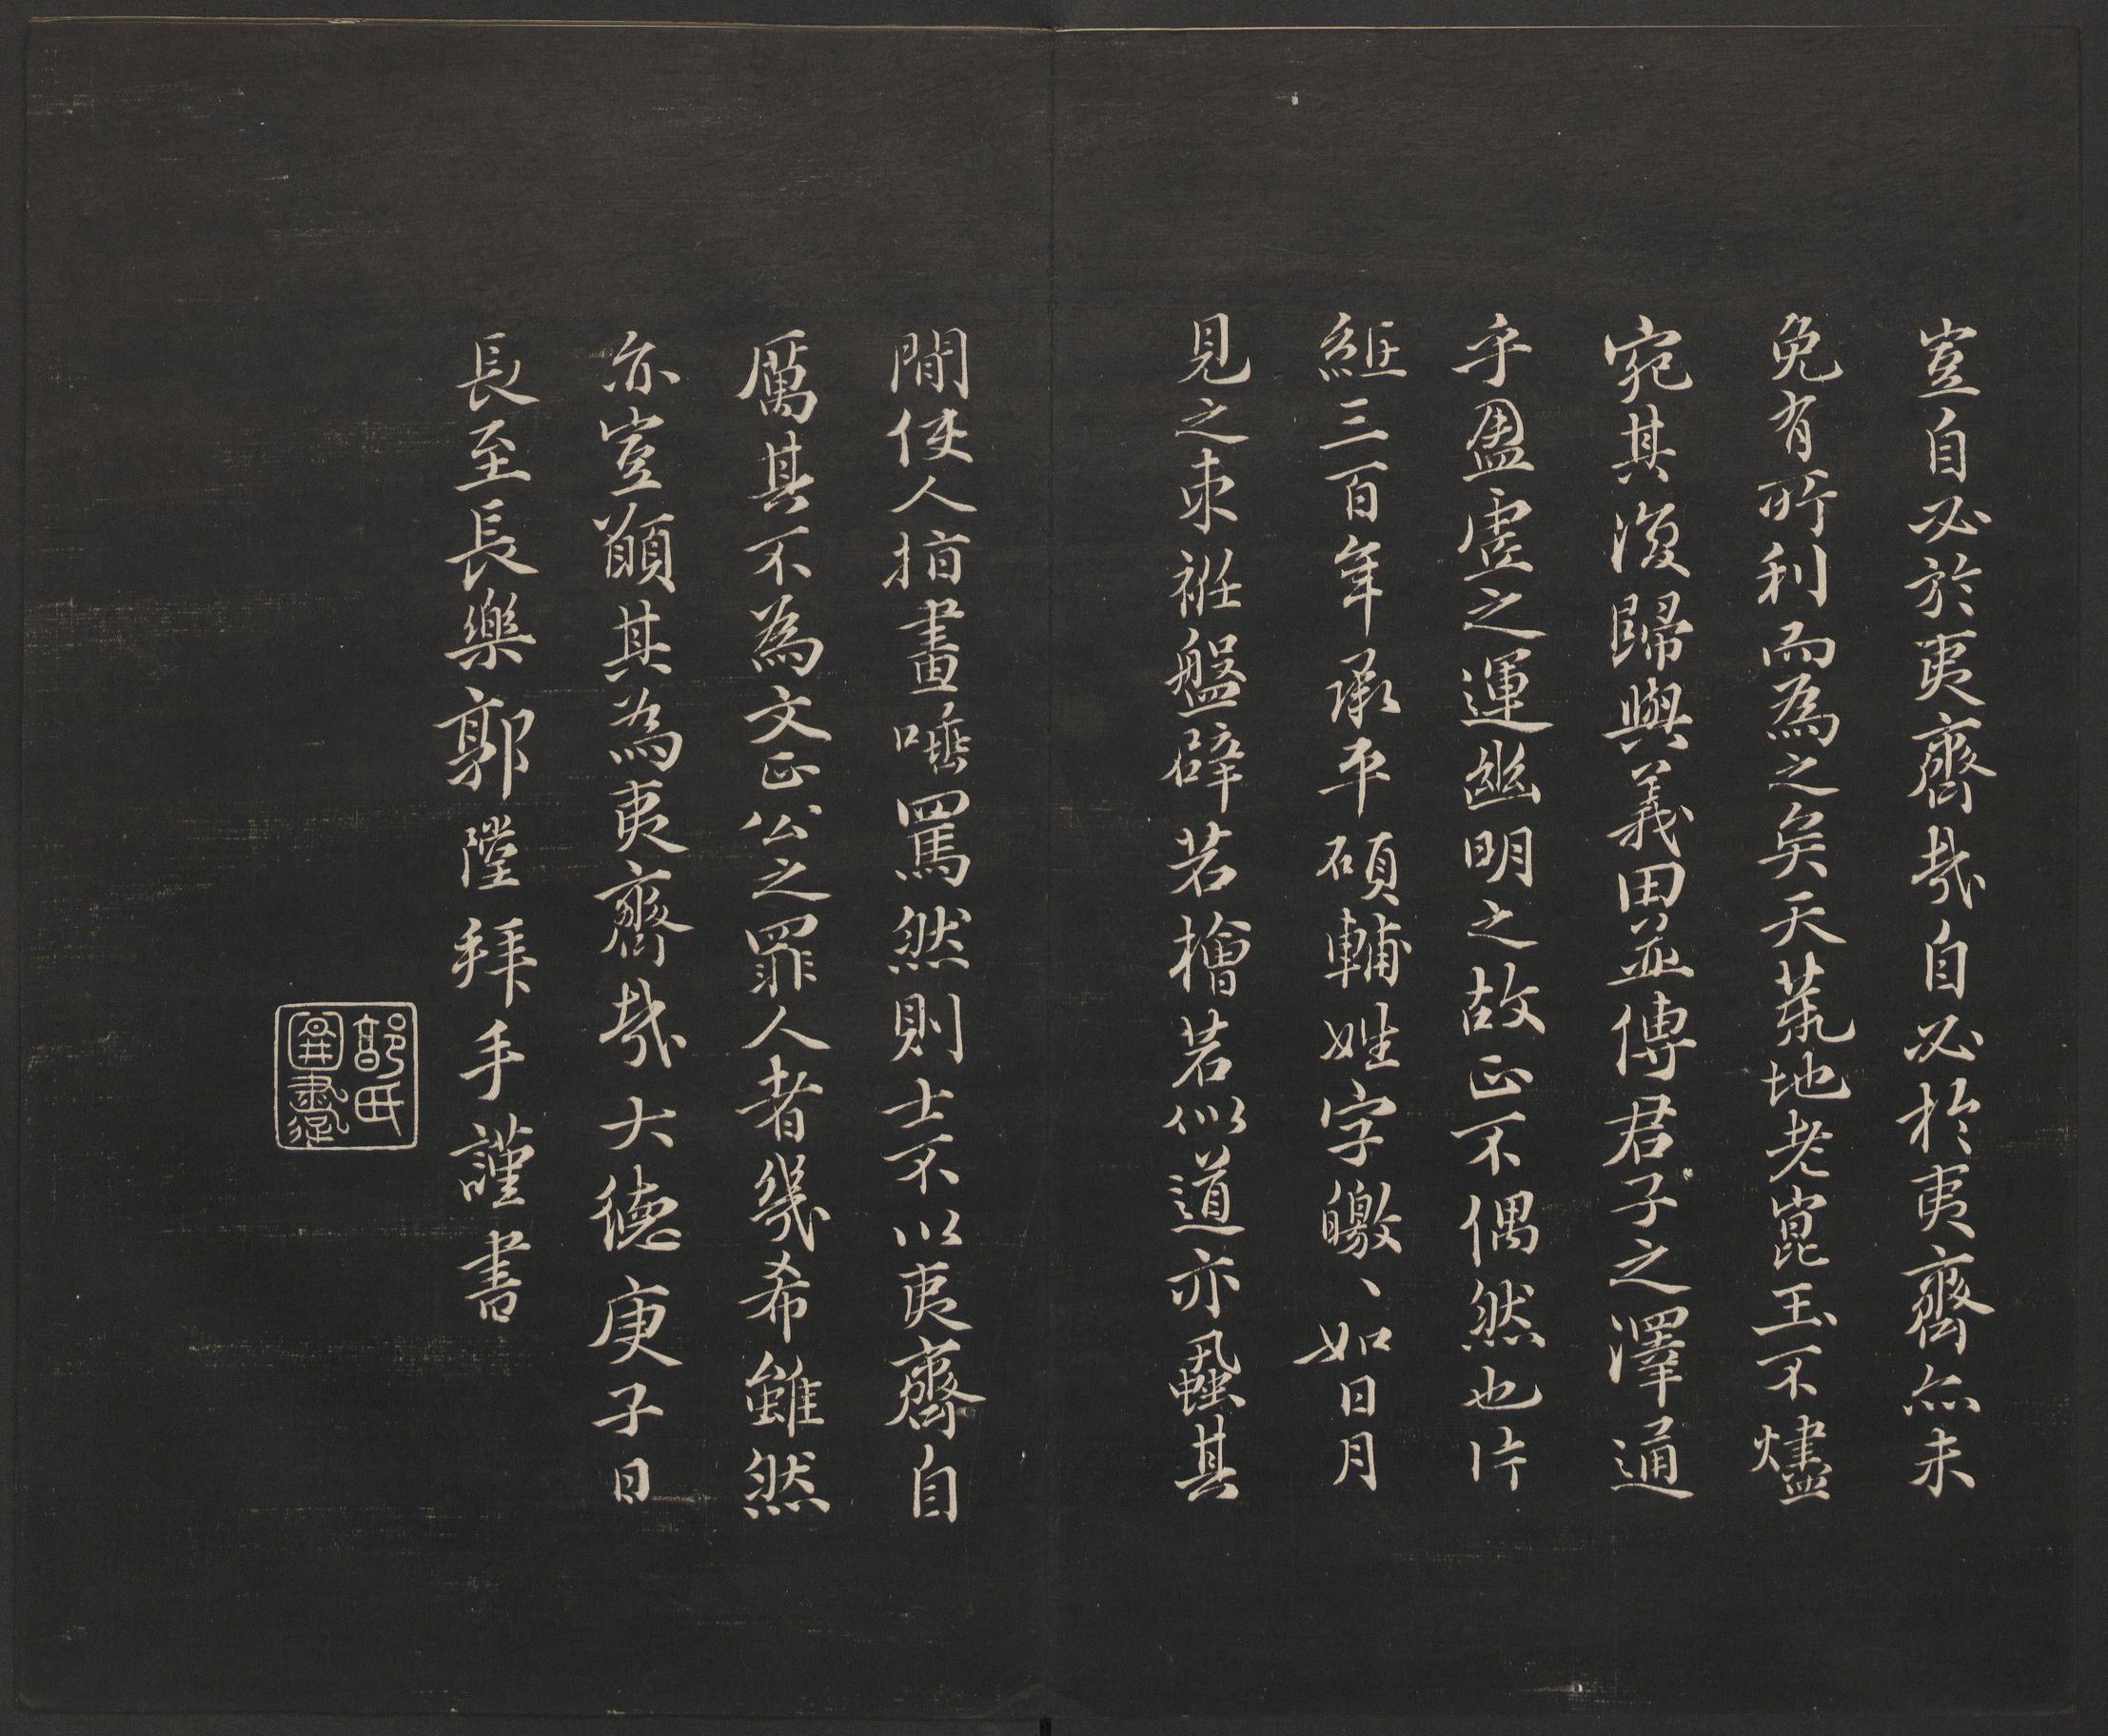 豈自必於夷齊哉自必於夷齊亦未
免有所利而為之矣天荒地老崑玉不燼
宛其復歸與義田並傳君子之澤通
乎盈虛之運幽明之故正不偶然也片
紙三百年承平碩輔姓字皦、如日月
見之束衽盤辟若檜若似道亦蝨其
間使人指畫唾罵然則士不以夷齊自
厲其不為文正公之罪人者幾希雖然
亦豈願其為夷齊哉大德庚子日
長至長樂郭隚拜手謹書
郭氏
圖書